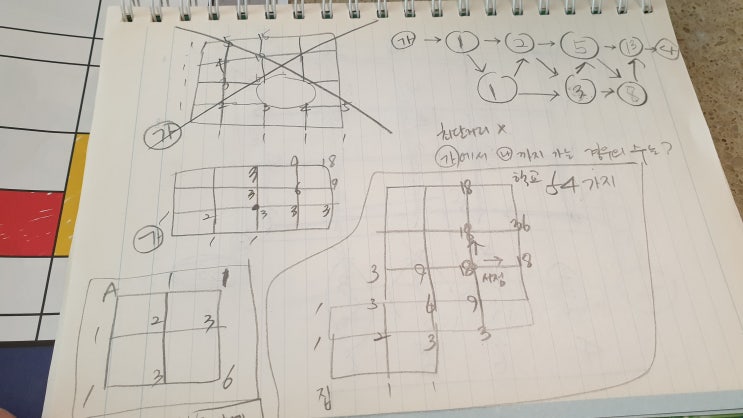 가 → 1 → 2 → 5 → 13 → 나
1 → 3 → 8
최단거리 x
가에서 나까지 가는 경우의 수는?
가
3 9 18
3 6 9
2 3 3 3
가 1 1
A 1 1
1 2 3
1 3 6
18 학교 54가지
18 36
3 9 18 → 18
서점
1 3 6 9
1 2 3 3
집 1 1